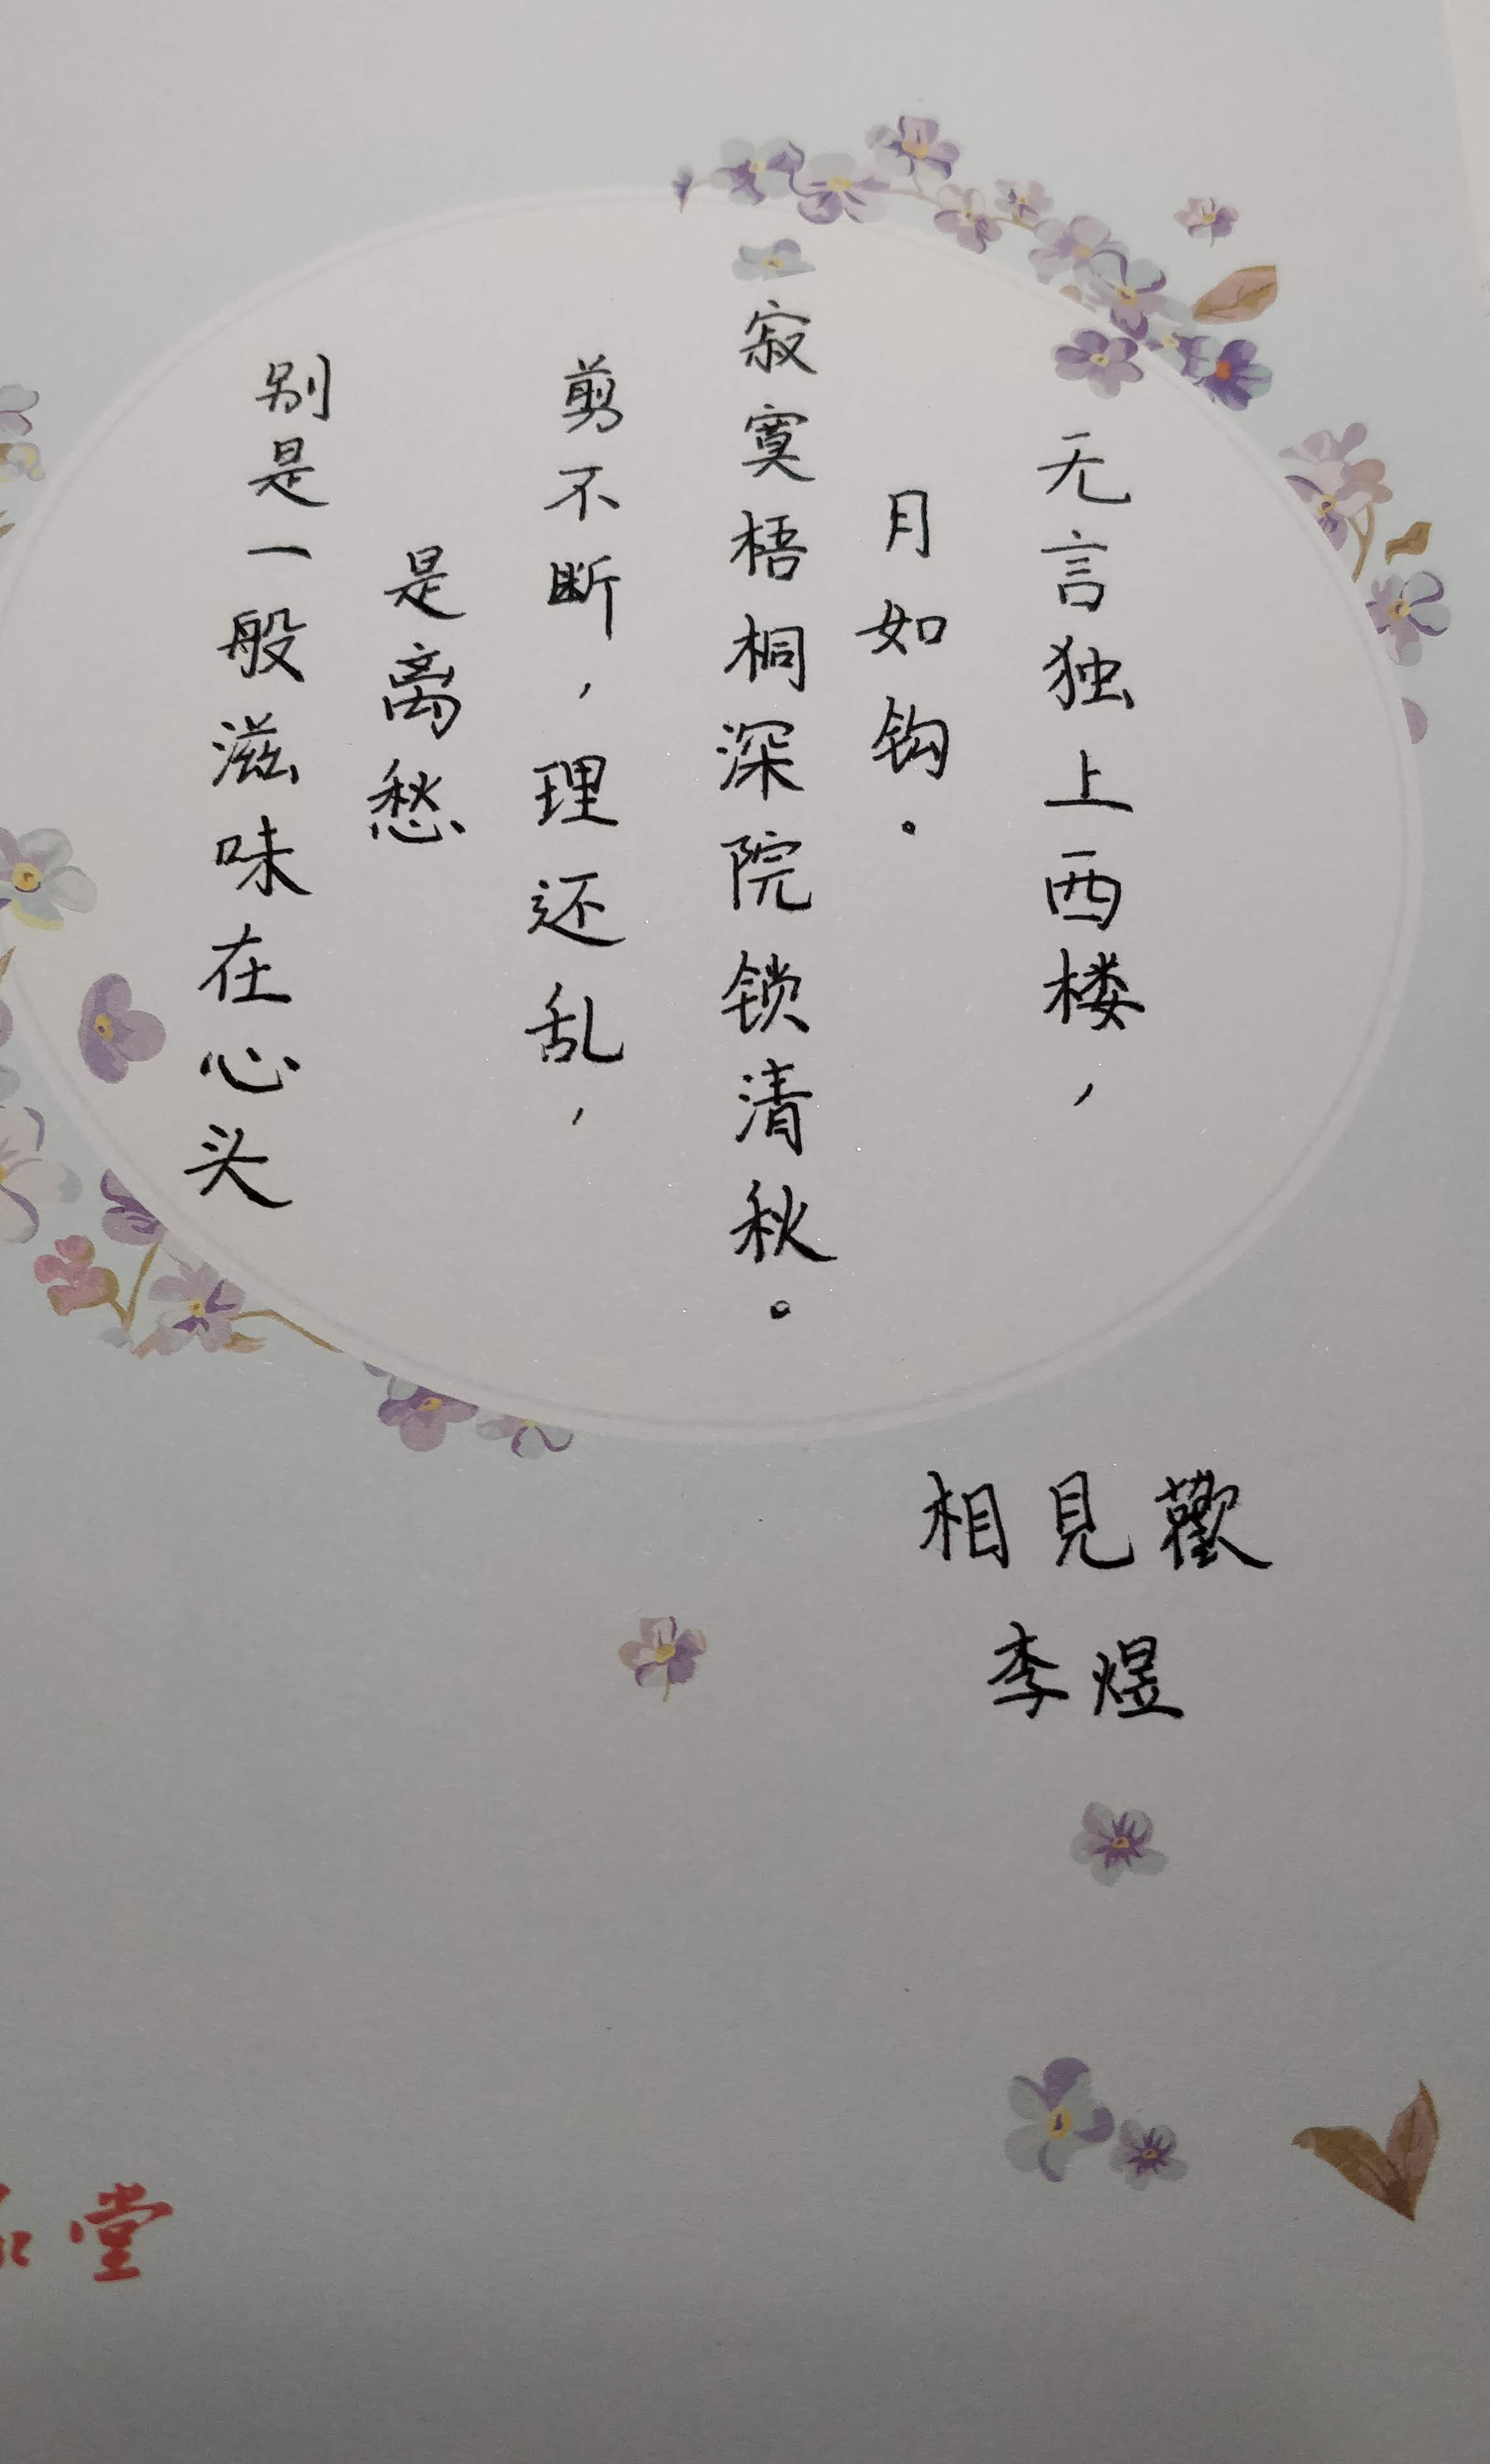 无言独上西楼，
月如钩。
寂寞梧桐深院锁清秋。
剪不断，理还乱，
是离愁
别是一般滋味在心头
相見歡
李煜
堂